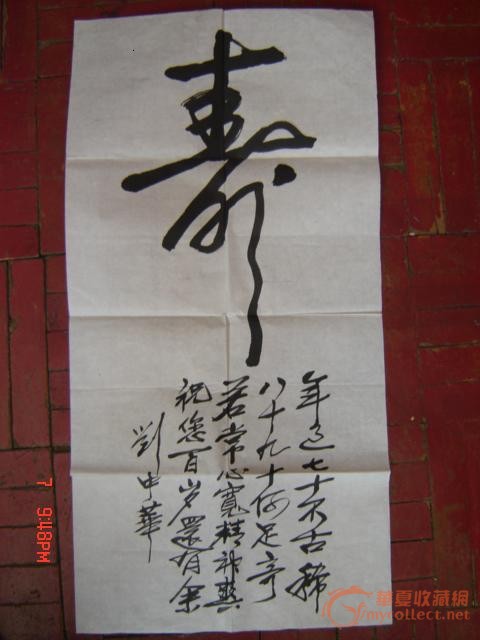 壽
年过七十不古稀
八十九十何足奇
若常心寬精神爽
祝您百岁還有余
劉中華
7 9:48PM
華夏收藏網
mycollect.net